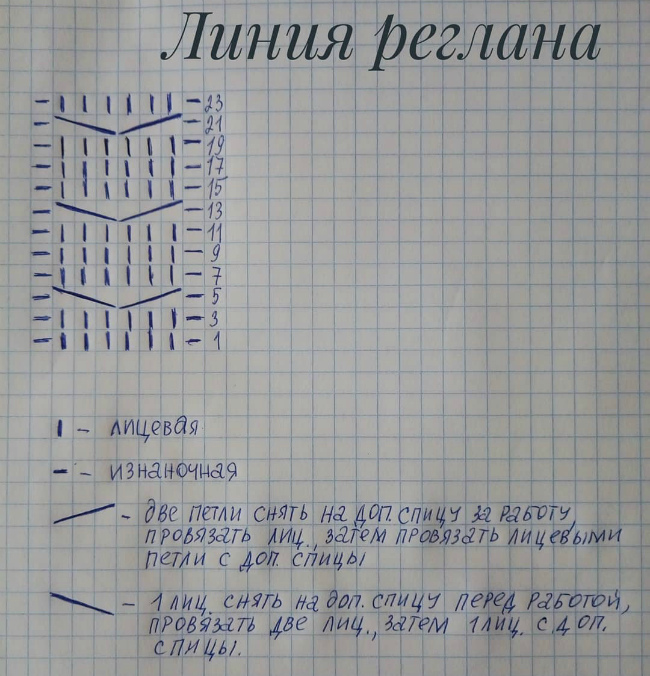 Линия реглана
– | | | | | | – 23
– – 21
– | | | | | | – 19
– | | | | | | – 17
– | | | | | | – 15
– – 13
– | | | | | | – 11
– | | | | | | – 9
– | | | | | | – 7
– – 5
– | | | | | | – 3
– | | | | | | – 1
| – лицевая
– – изнаночная
– две петли снять на доп. спицу за работу,
провязать лиц., затем провязать лицевыми
петли с доп. спицы
– 1 лиц. снять на доп. спицу перед работой,
провязать две лиц., затем 1 лиц. с доп.
спицы.